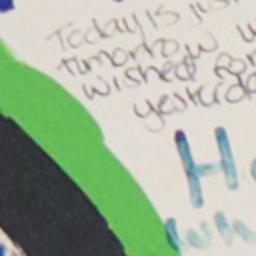 Today is jus
tumorrow w
wished for
yesterda
H